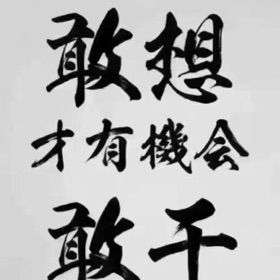 敢想
才有機会
敢干